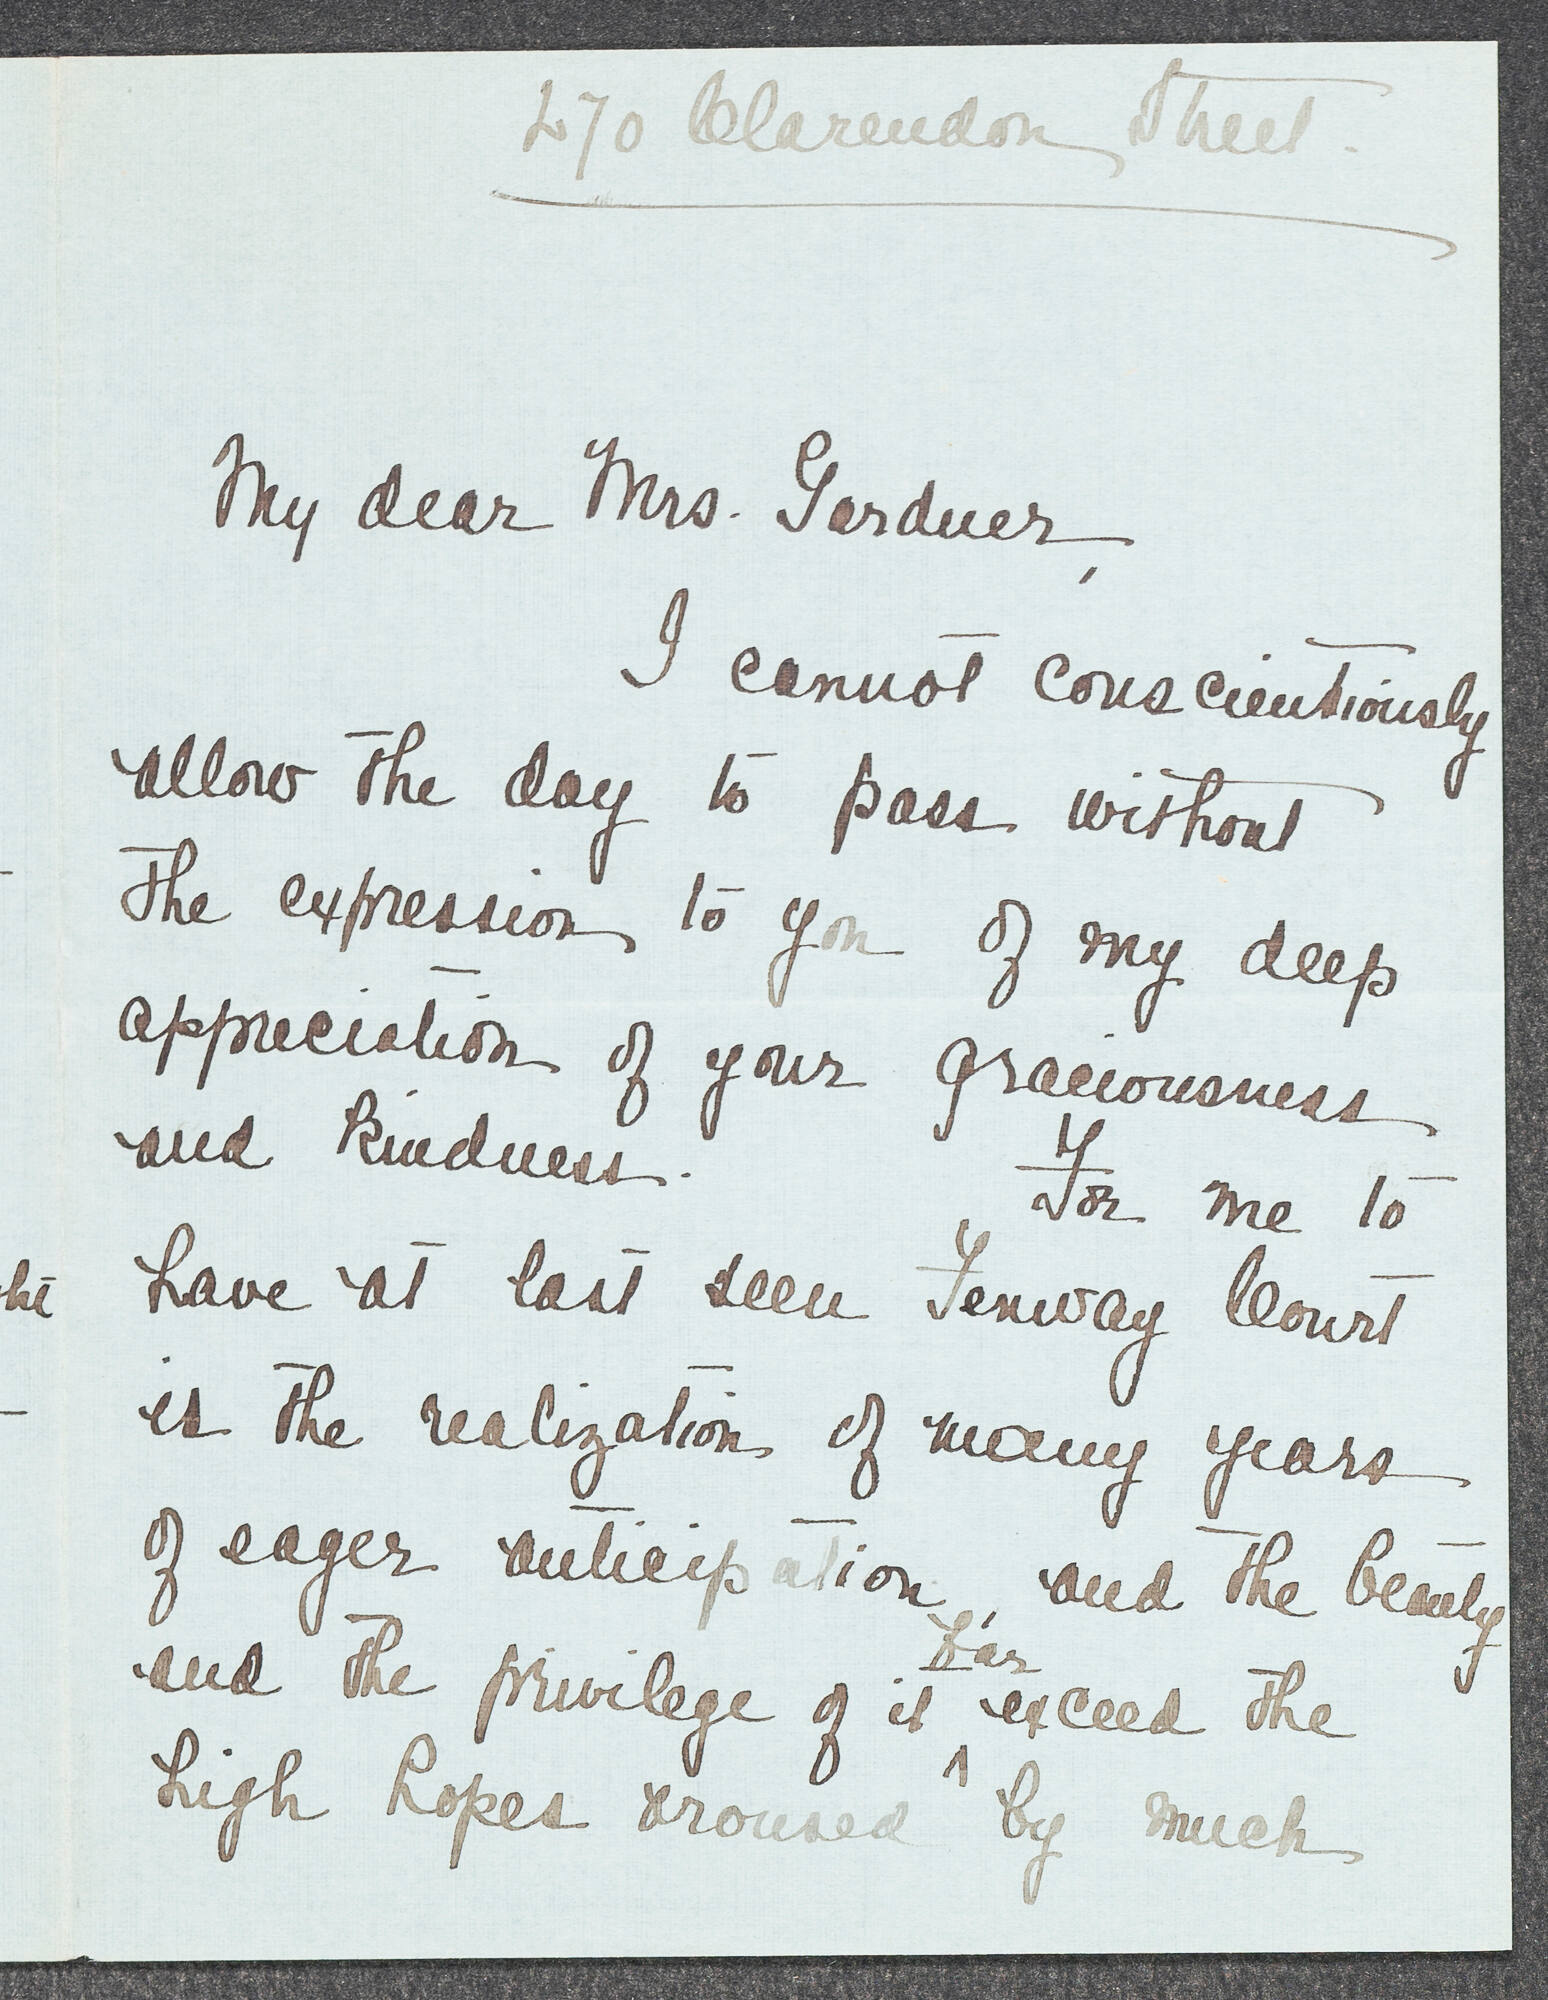 270 Clarendon Street.
My dear Mrs. Gardner,
I cannot conscientiously
allow the day to pass without
the expression to you of my deep
appreciation of your graciousness
and kindness. For me to
have at last seen Fenway Court
is the realization of many years
of eager anticipation, and the beauty
and the privilege of it far exceed the
high hopes aroused by much